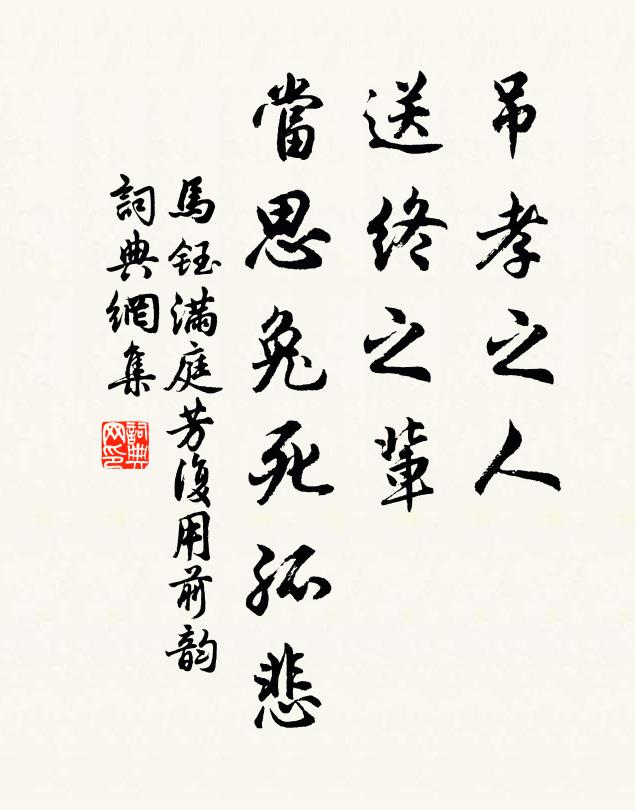 吊孝之人
送終之輩
當思兔死狐悲
馬鈺滿庭芳復用前韵
詞典網集
詞典网印